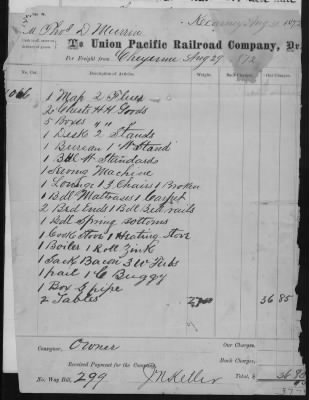 Kearney, Aug 31 1872
M Thos D Murrin
To Union Pacific Railroad Company, Dr.
For Freight from Cheyenne Aug 29 1872
No. Car. Description of Articles. Weight. Back Charges. Our Charges.
1 Map 2 Flues
2 Chests H H Goods
5 Boxes " "
1 Desk 2 Stands
1 Bureau 1 W Stand
1 Bdl W Standards
1 Sewing Machine
1 Lounge 13 Chairs 1 Broken
1 Bdl Mattrases 1 Carpet
2 Bed Ends 1 Bdl Bed rails
1 Bdl Spring bottoms
1 Cook Stove 1 Heating Stove
1 Boiler 1 Roll Zink
1 Sack Bacon 3 W Tubs
1 part 1 C Buggy
1 Box & pipe
2 Tables 36 85
Consignor, Owner Our Charges,
Received Payment for the Company, Back Charges,
No. Way Bill, 299 J N Keller Total, $ 36 85